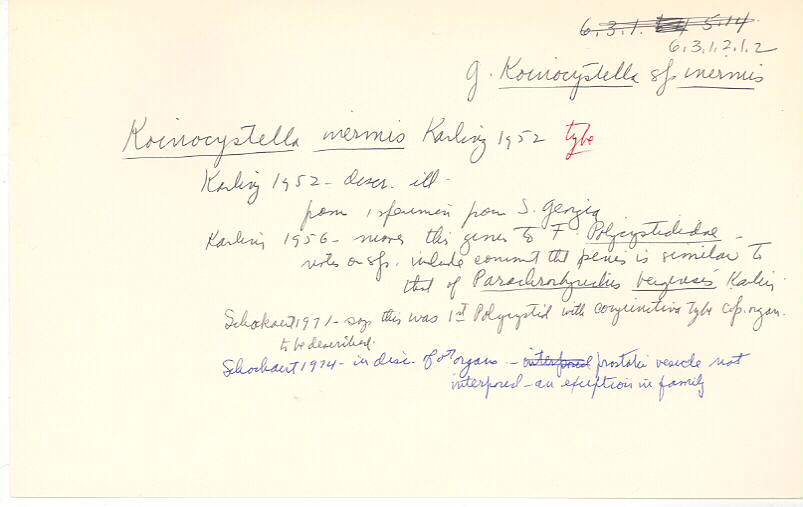 6.3.1. 5.14
6.3.1.2.1.2
g. Koinocystella sp inermis
Koinocystella inermis Karling 1952 type
Karling 1952 - descr. ill -
from 1 specimen from S. Georgia
Karling 1956 - moves this genus to F. Polycystididae -
notes on sp. include comment tht penis is similar to
that of Parachrorhynchus bergensis Karling.
Schokaert 1971 - says this was 1st Polycystid with conjunctiva type cop. organ.
to be described.
Schockaert 1974 - in disc. of ♂ organs - interposed prostatic vesicle not
interposed - an exception in family